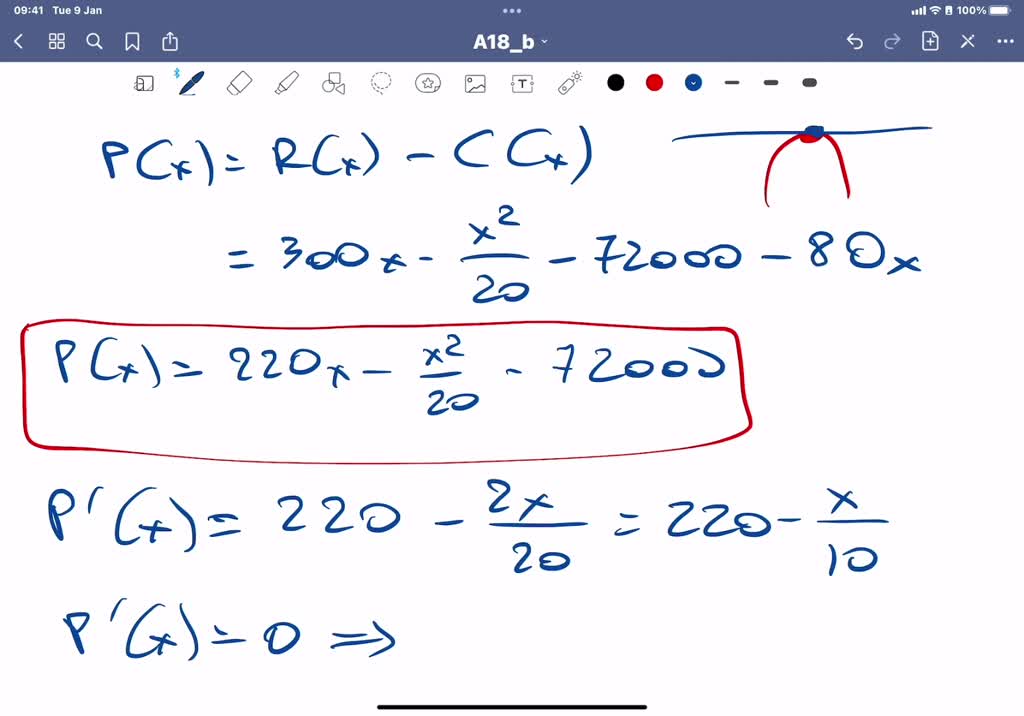 09:41 Tue 9 Jan
100%
A18_b
T
P(x) = R(x) - C(x)
= 300x - x²/20 - 72000 - 80x
P(x) = 220x - x²/20 - 72000
P'(x) = 220 - 2x/20 = 220 - x/10
P'(x) = 0 ⇒